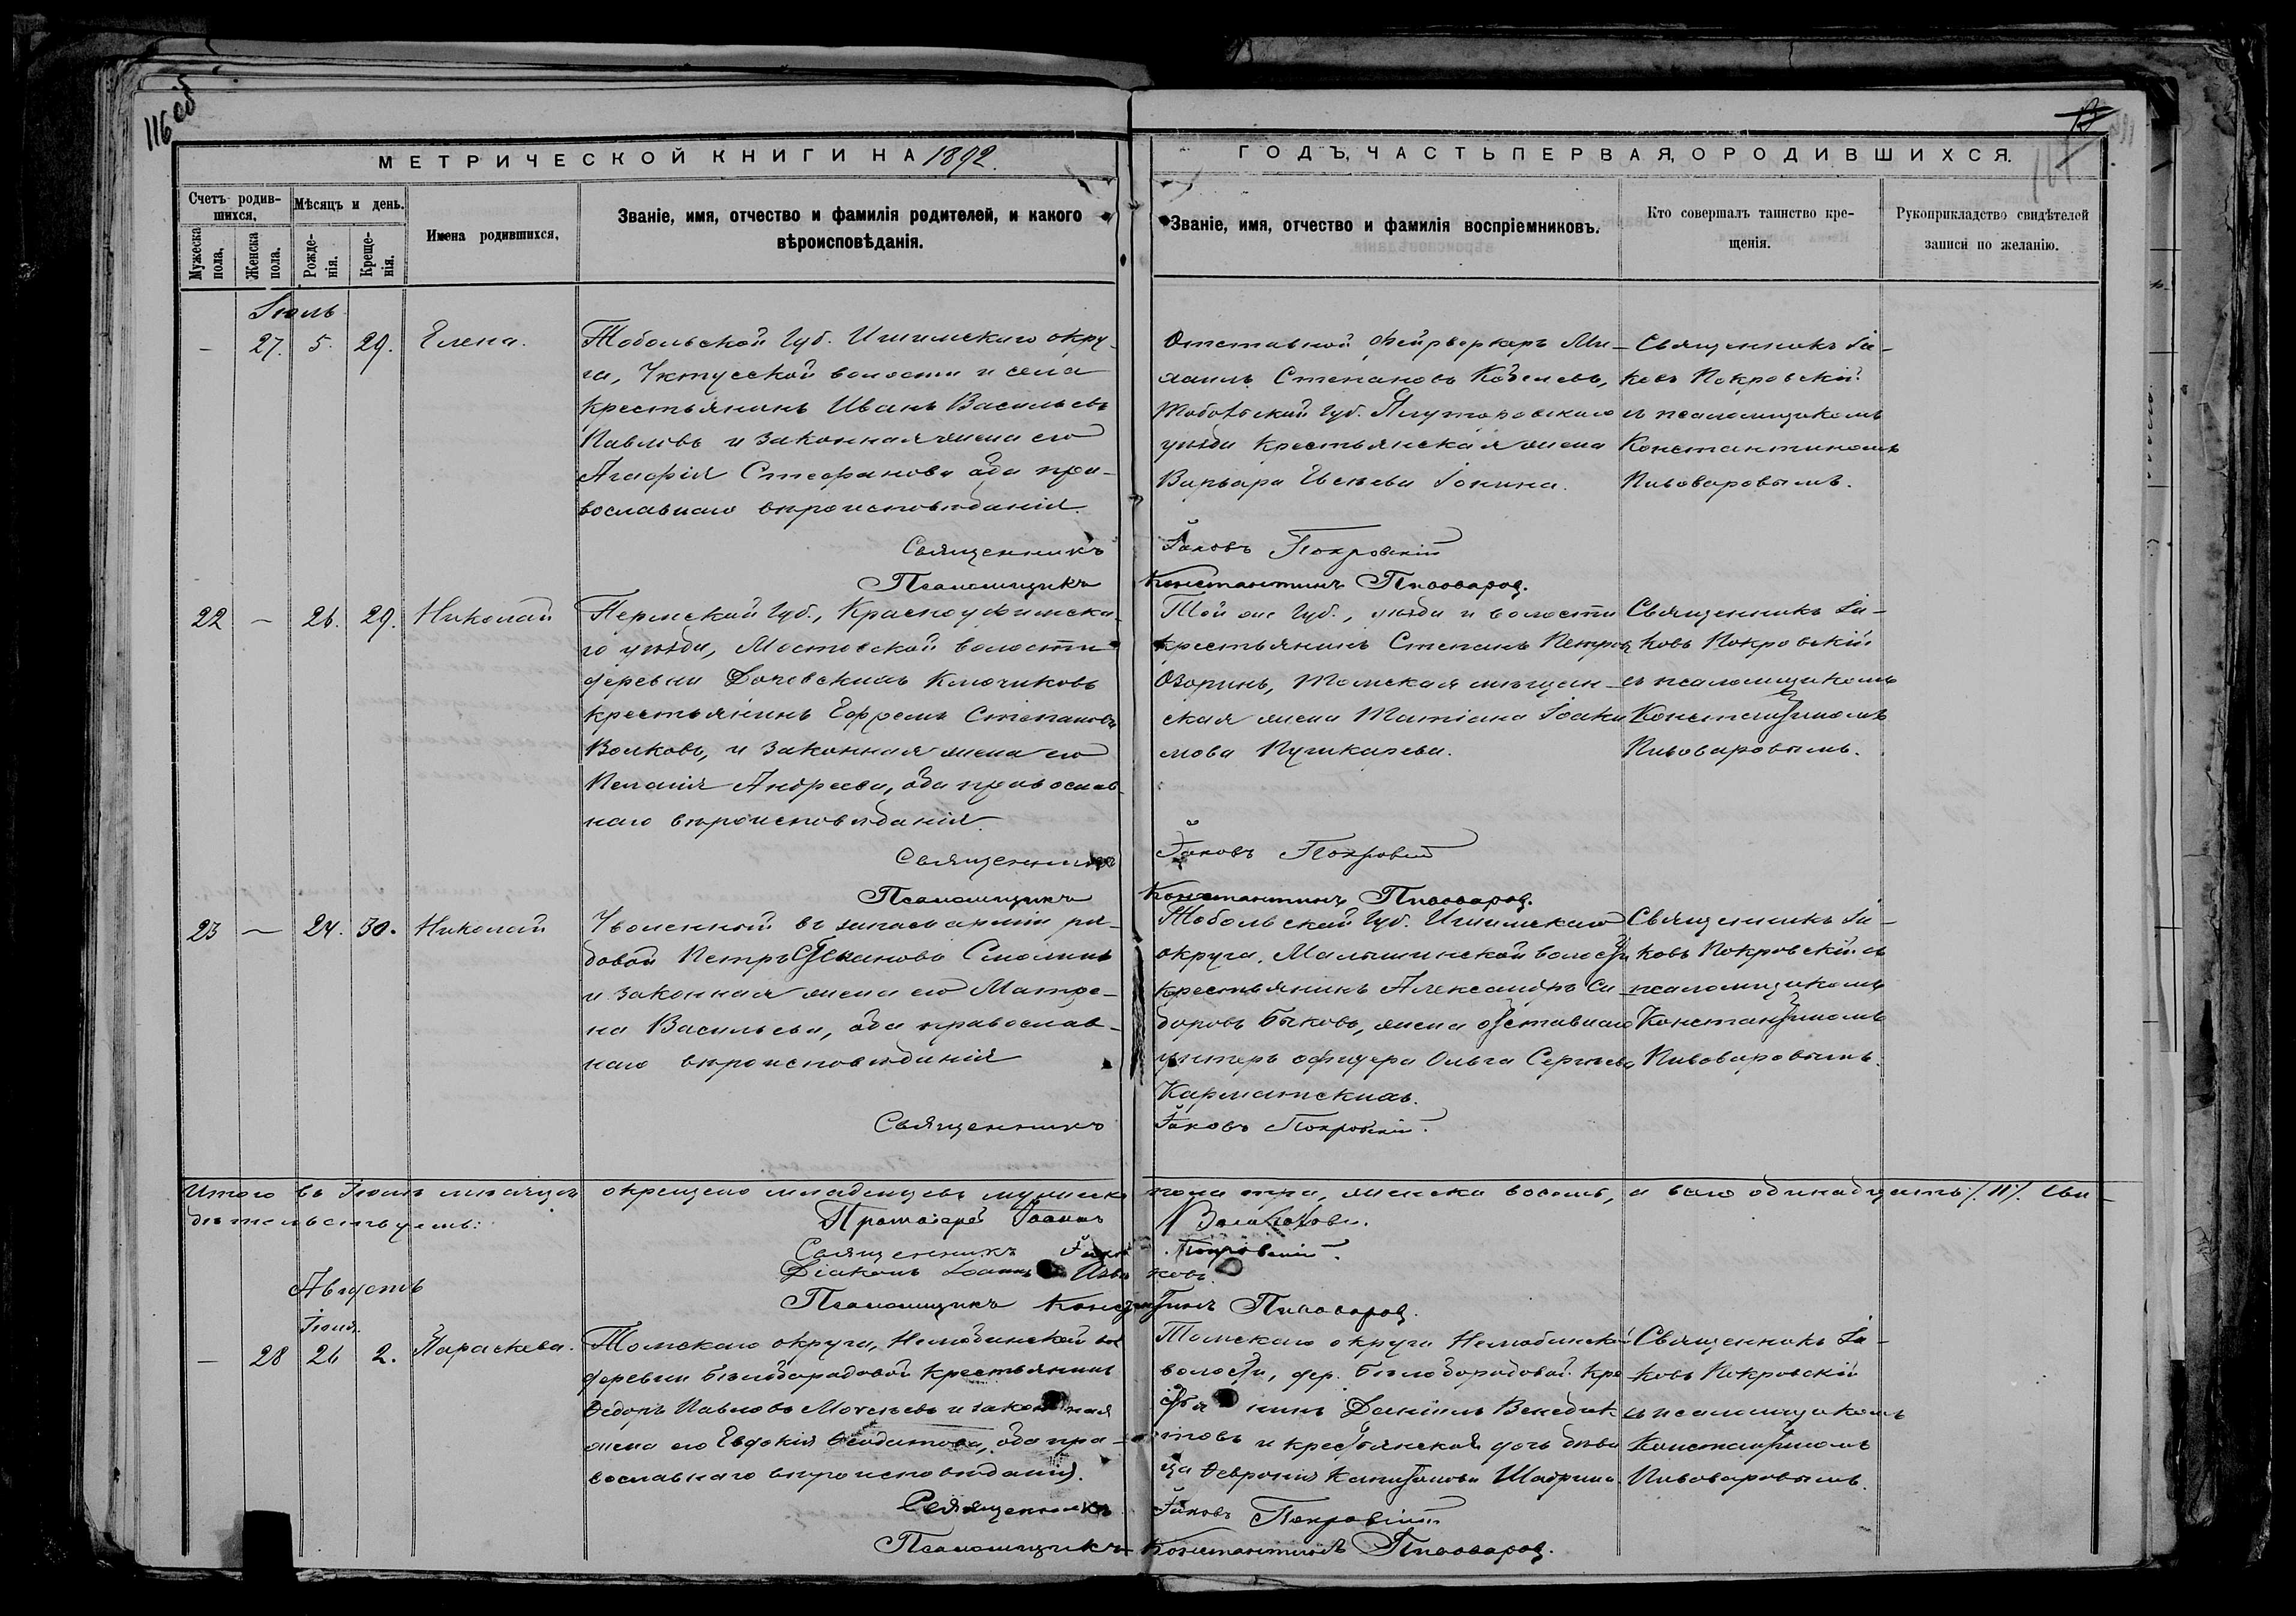 116 об
МЕТРИЧЕСКОЙ КНИГИ НА 1892.
ГОДЪ, ЧАСТЬ ПЕРВАЯ, О РОДИВШИХСЯ.
Счетъ родив-
шихся,
Мужеска
пола.
Женска
пола.
Мѣсяцъ и день.
Рожде-
нія.
Креще-
нія.
Имена родившихся,
Званіе, имя, отчество и фамилія родителей, и какого
вѣроисповѣданія.
Званіе, имя, отчество и фамилія воспріемниковъ.
Кто совершалъ таинство кре-
щенія.
Рукоприкладство свидѣтелей
записи по желанію.
Іюль
— 27. 5. 29. Елена.
Тобольской Губ. Ишимскаго окру-
га, Уктусской волости и села
крестьянинъ Иванъ Васильевъ
Павловъ и законная жена его
Агафія Стефанова оба пра-
вославнаго вѣроисповѣданія.
Отставной фейрверкеръ Ми-
хаилъ Степановъ Кобелевъ,
Тобольской Губ. Ялуторовскаго
уѣзда крестьянская жена
Варвара Іонина.
Священникъ Іа-
ковъ Покровскій
съ псаломщикомъ
Константиномъ
Пивоваровымъ.
Священникъ Іаковъ Покровскій
Псаломщикъ Константинъ Пивоваров.
22 — 26. 29. Николай
Пермской Губ., Красноуфимска-
го уѣзда, Мостовской волости
деревни Ключиковъ
крестьянинъ Ефремъ Степановъ
Волковъ, и законная жена его
Пелагія Андреева, оба православ-
наго вѣроисповѣданія.
Той же Губ., уѣзда и волости
крестьянинъ Степанъ Петровъ
Озоринъ, Томская мѣщан-
ская жена Татіана Іоаки
мова Пушкарева.
Священникъ Іа-
ковъ Покровскій
съ псаломщикомъ
Константиномъ
Пивоваровымъ.
Священникъ Іаковъ Покровскій
Псаломщикъ Константинъ Пивоваров.
23 — 24. 30. Николай
Уволенный въ запасъ арміи ря-
довой Петръ Смолинъ
и законная жена его Матре-
на Васильева, оба православ-
наго вѣроисповѣданія
Тобольской Губ. Ишимскаго
округа, Малышинской волости
крестьянинъ Александръ Си-
доровъ Быковъ, жена отставнаго
унтеръ офицера Ольга Сергѣева
Карматскихъ.
Священникъ Іа-
ковъ Покровскій съ
псаломщикомъ
Константиномъ
Пивоваровымъ.
Священникъ Іаковъ Покровскій.
Итого въ Іюлѣ мѣсяцѣ окрещено младенцевъ мужеска пола три, женска восемь, а всего одинадцать /. 11 /. Сви-
дѣтельствуемъ:
Протоіерей Іоаннъ
Священникъ Іаковъ Покровскій.
Діаконъ Іоаннъ
Псаломщикъ Константинъ Пивоваров.
Августъ
Іюля.
— 28 26 2. Параскева.
Томскаго округа, Нелюбинской вол
деревни Бѣлобородовой крестьянинъ
Ѳедоръ Павловъ и законная
жена его Евдокія оба пра-
вославнаго вѣроисповѣданія.
Томскаго округа Нелюбинской
волости, дер. Бѣлобородовой кре
стьянинъ Даніилъ Венедик
товъ и крестьянской дочь дѣви
ца Февронія Шадрина.
Священникъ Іа-
ковъ Покровскій
съ псаломщикомъ
Константиномъ
Пивоваровымъ.
Священникъ Іаковъ Покровскій
Псаломщикъ Константинъ Пивоваров.